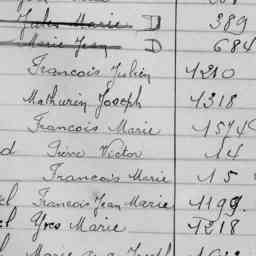 Jules Marie D 389
Marie Jean D 684
Francois Julien 1210
Mathurin Joseph 1318
Francois Marie 1574
d Pierre Victor 14
Francois Marie 15
el Francois Jean Marie 1199
el Yves Marie 1218
Marie Joseph